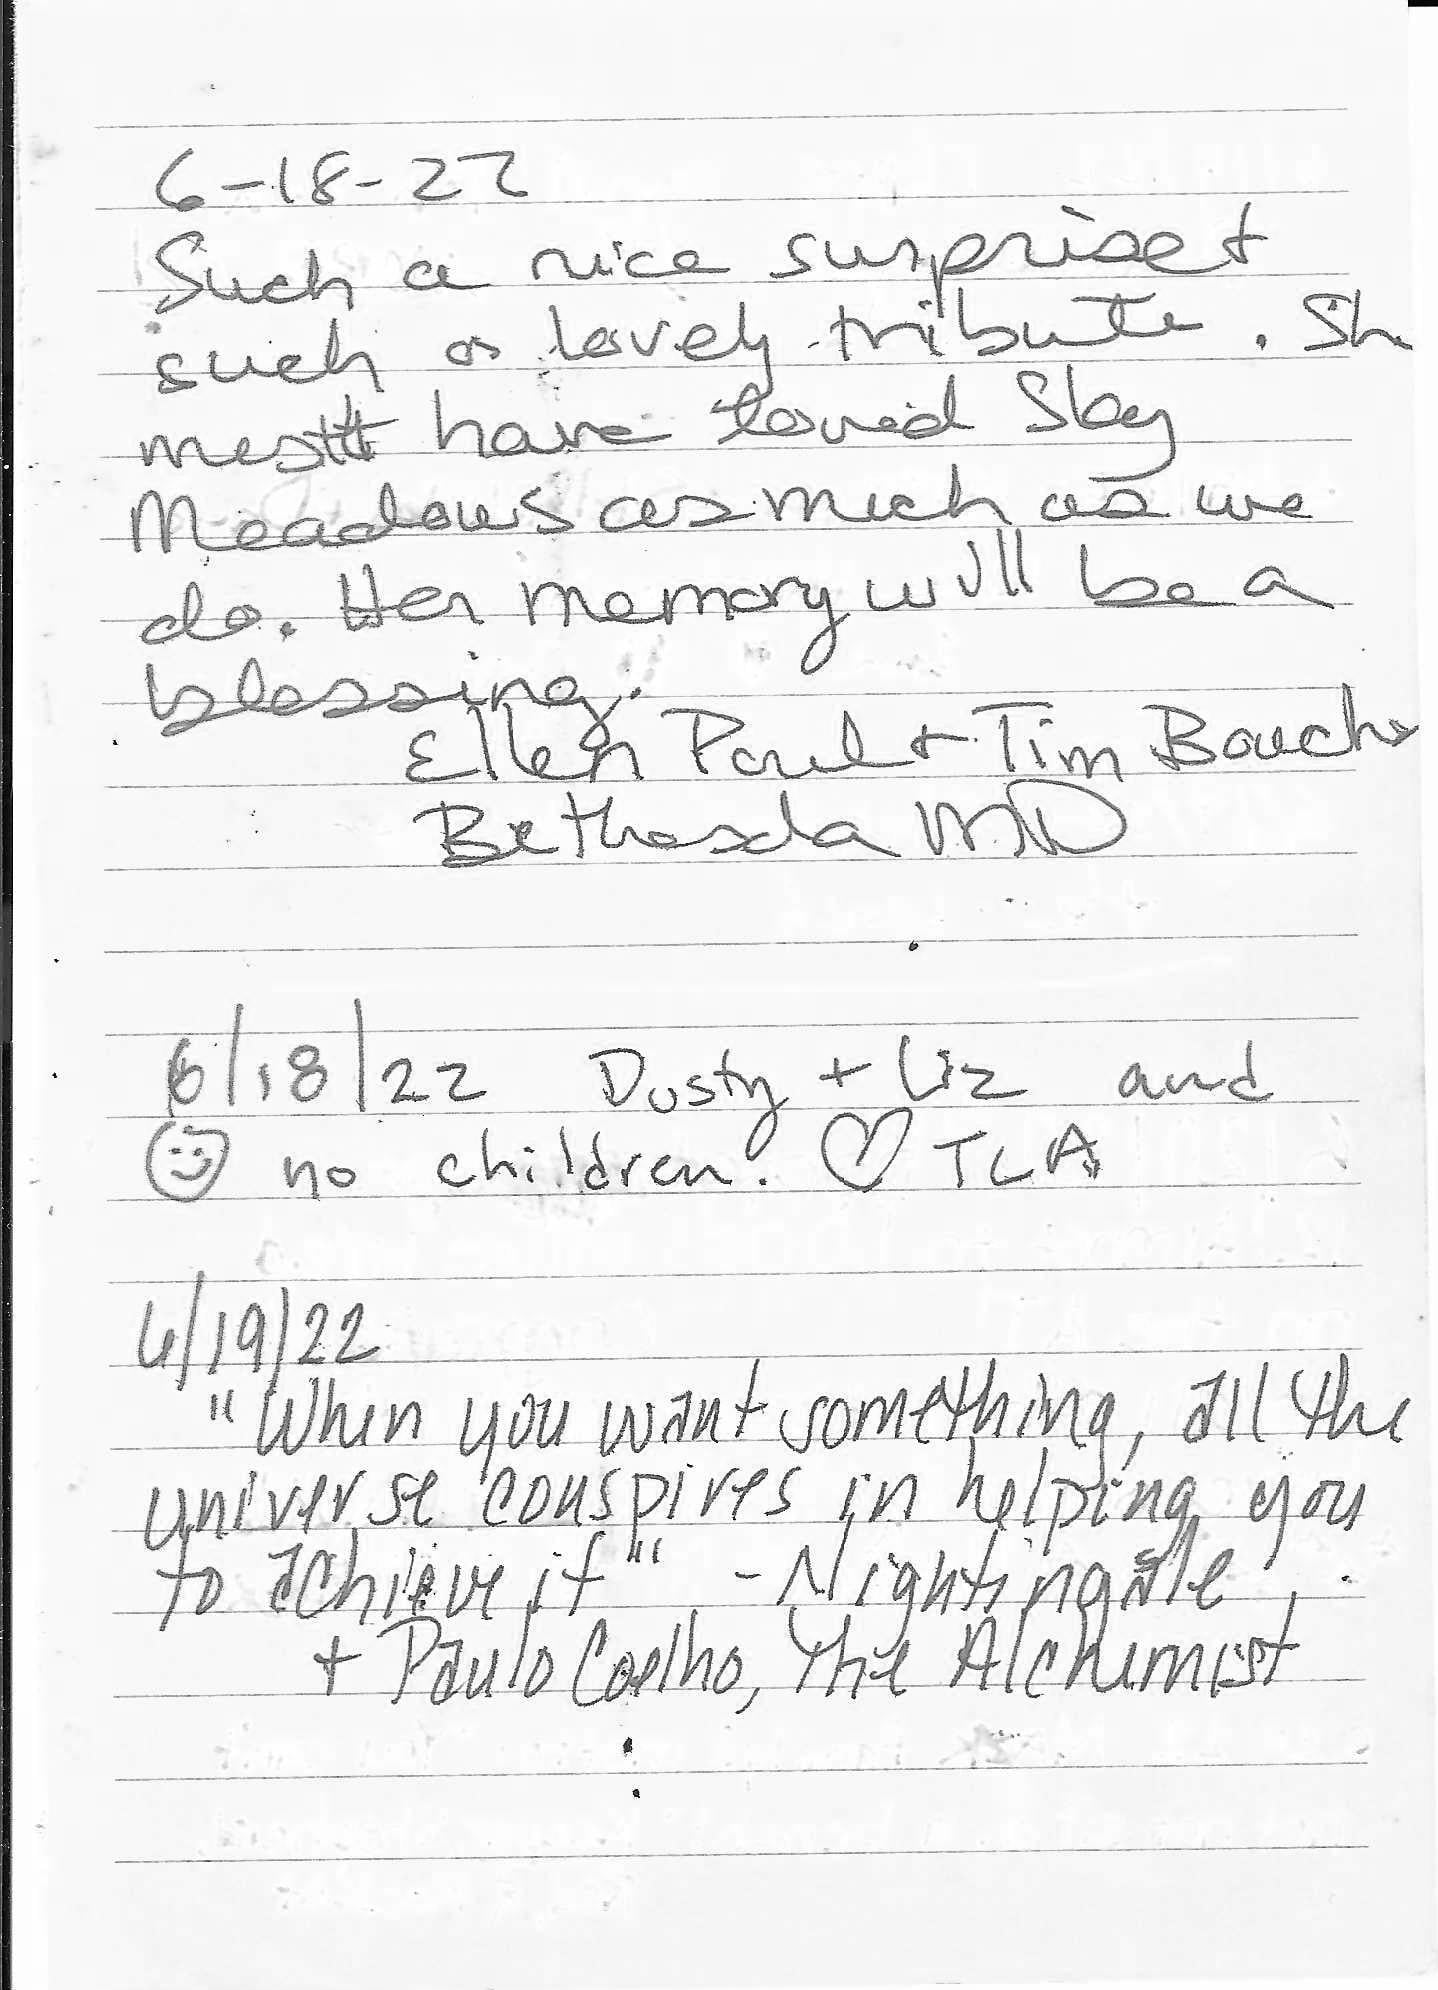 6-18-22
Such a nice surprise +
such a lovely tribute. Sh
must have loved Sky
Meadows as much as we
do. Her memory will be a
blessing.
Ellen Paul + Tim Bouche
Bethesda MD
6/18/22 Dusty + Liz and
no children. ♡ TLA
6/19/22
"When you want something, all the
universe conspires in helping you
to achieve it" - Nightingale
+ Paulo Coelho, The Alchemist